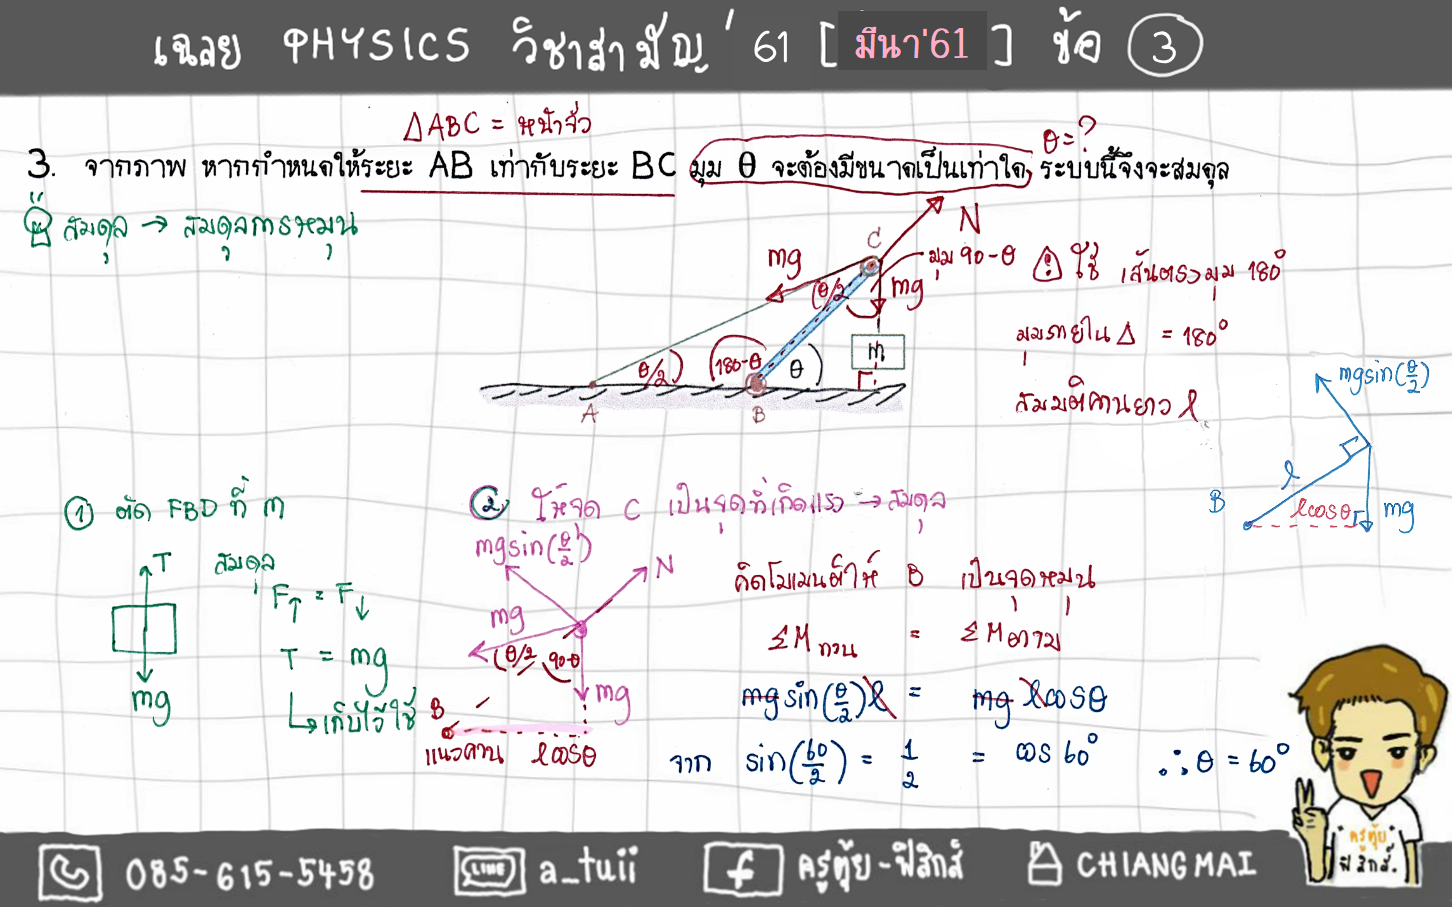 เฉลย PHYSICS วิชาสามัญ' 61 [มีนา'61] ข้อ 3
ΔABC = หน้าจั่ว
θ=?
3. จากภาพ หากกำหนดให้ระยะ AB เท่ากับระยะ BC มุม θ จะต้องมีขนาดเป็นเท่าใด ระบบนี้จึงจะสมดุล
สมดุล → สมดุลการหมุน
N
C
mg
มุม 90-θ
θ/2
mg
m
θ/2
180-θ
θ
A
B
ใช้ เส้นตรงมุม 180°
มุมภายใน Δ = 180°
สมมติคานยาว l
mgsin(θ/2)
l
B
lcosθ
mg
① ตัด FBD ที่ m
T
mg
สมดุล
F↑ = F↓
T = mg
↳เก็บไว้ใช้
② ให้จุด C เป็นจุดที่เกิดแรง → สมดุล
mgsin(θ/2)
N
mg
θ/2
90-θ
mg
B
แนวคาน lcosθ
คิดโมเมนต์ให้ B เป็นจุดหมุน
ΣMทวน = ΣMตาม
mgsin(θ/2)l = mg lcosθ
จาก sin(60/2) = 1/2 = cos 60° ∴ θ = 60°
ครูตุ้ย
ฟิสิกส์.
085-615-5458
LINE a_tuii
f ครูตุ้ย-ฟิสิกส์
CHIANGMAI